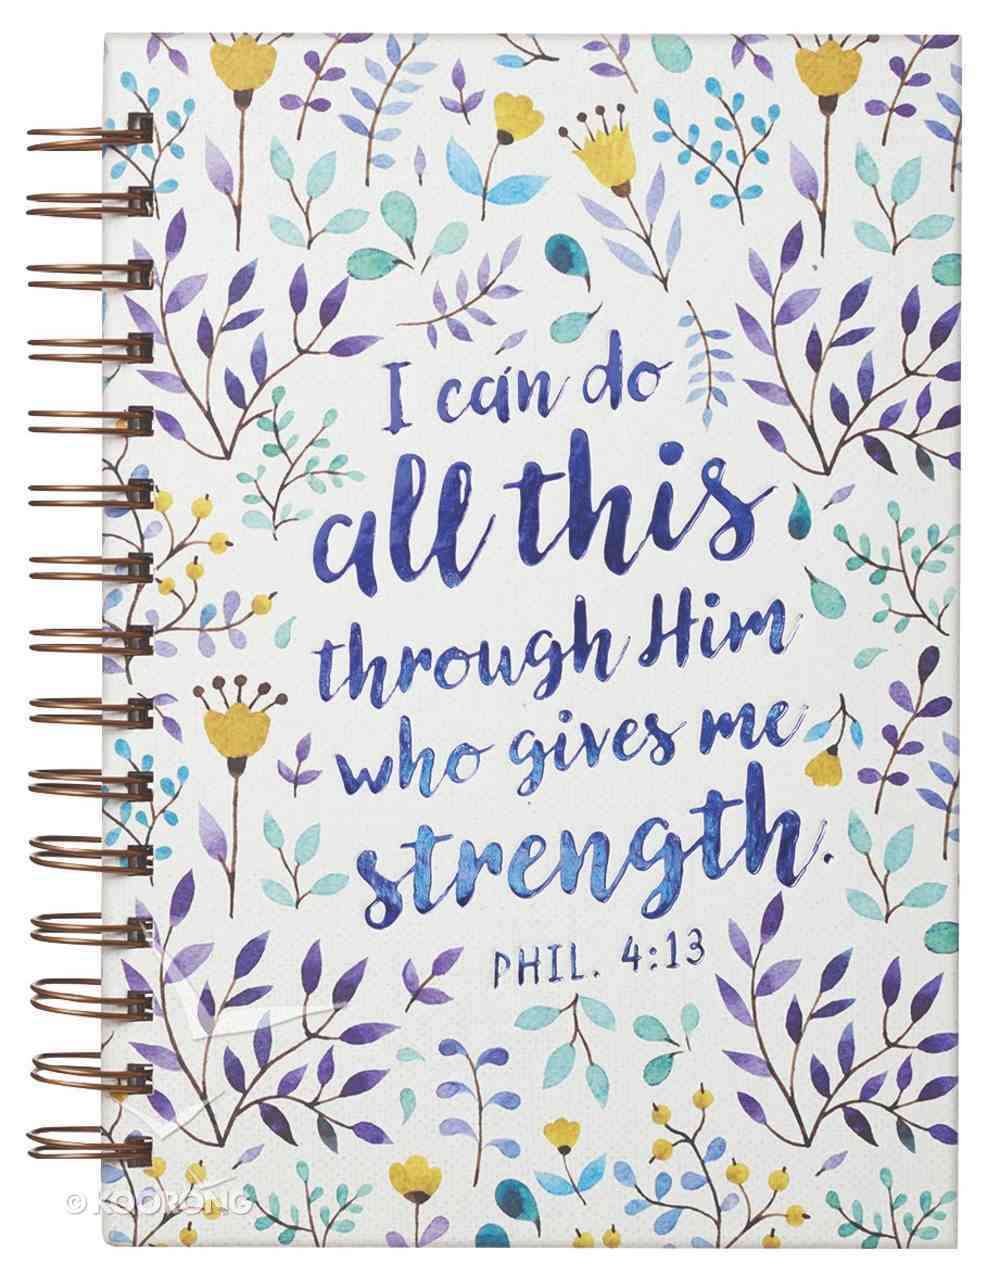 I can do
all this
through Him
who gives me
strength.
PHIL. 4:13
© KOORONG